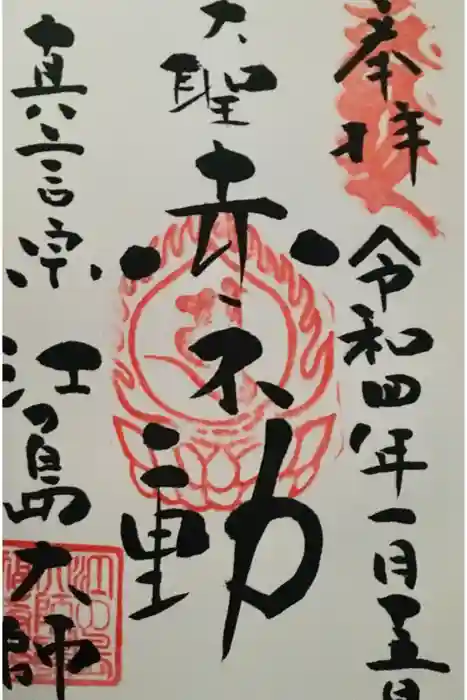 奉拝
令和四年一月五日
大聖赤不動
真言宗
江の島大師